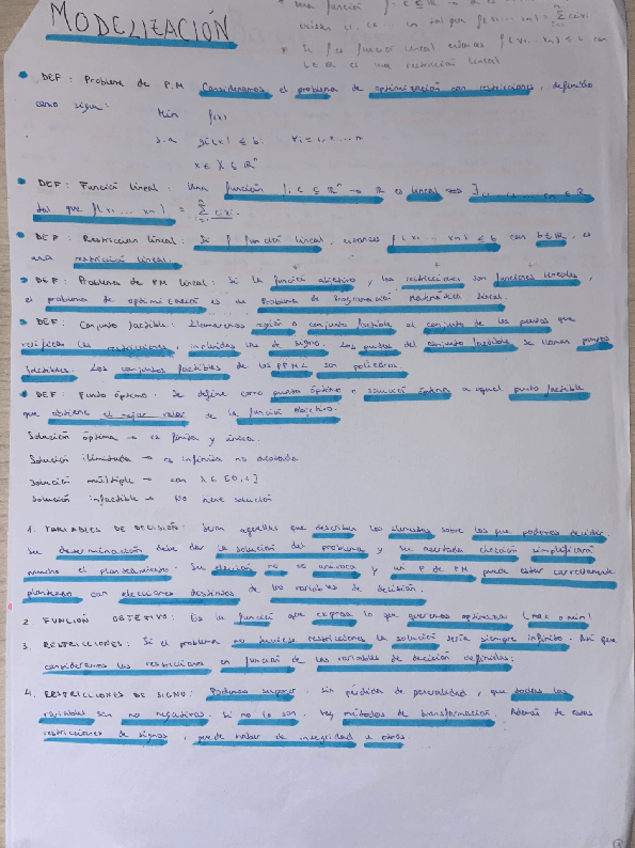 MODELIZACIÓN
DEF: Problema de P.M Consideramos el problema de optimización con restricciones, definido
como sigue: Min f(x)
s.a gi(x) ≤ bi ∀i = 1, ... n
x ∈ X ⊆ ℝⁿ
DEF: Función lineal: Una función f: C ⊆ ℝⁿ → ℝ es lineal ⟺ ∃ c1, ... cn ∈ ℝ
tal que f(x1, ... xn) = Σ cixi.
DEF: Restriccion lineal: Si f función lineal, entonces f(x1 ... xn) ≤ b con b∈ℝ, es
una restricción lineal.
DEF: Problema de PM lineal: Si la función objetivo y las restricciones son funciones lineales,
el problema de optimización es un Problema de Programación Matemática Lineal.
DEF: Conjunto factible: Llamaremos región o conjunto factible al conjunto de los puntos que
verifican las restricciones, incluidas las de signo. Los puntos del conjunto factible se llaman puntos
factibles. Los conjuntos factibles de los PPML son poliedros.
DEF: Punto óptimo: Se define como punto óptimo o solución óptima a aquel punto factible
que obtiene el mejor valor de la función objetivo.
Solución óptima → es finita y única.
Solución ilimitada → es infinita no acotada
Solución múltiple → con λ ∈ [0,1]
Solución infactible → No tiene solución
1. VARIABLES DE DECISIÓN: Serán aquellas que describen los elementos sobre los que podemos decidir.
Su determinación debe dar la solución del problema y su acertada elección simplificará
mucho el planteamiento. Su elección no es unívoca y un P de PM puede estar correctamente
planteado con elecciones distintas de las variables de decisión.
2. FUNCIÓN OBJETIVO: Es la función que expresa lo que queremos optimizar (max o min)
3. RESTRICCIONES: Si el problema no tuviese restricciones la solución sería siempre infinito. Así que
consideramos las restricciones en función de las variables de decisión definidas.
4. RESTRICCIONES DE SIGNO: Podemos suponer, sin pérdida de generalidad, que todas las
variables son no negativas. Si no lo son, hay métodos de transformación. Además de estas
restricciones de signos, puede haber de integridad u otras.